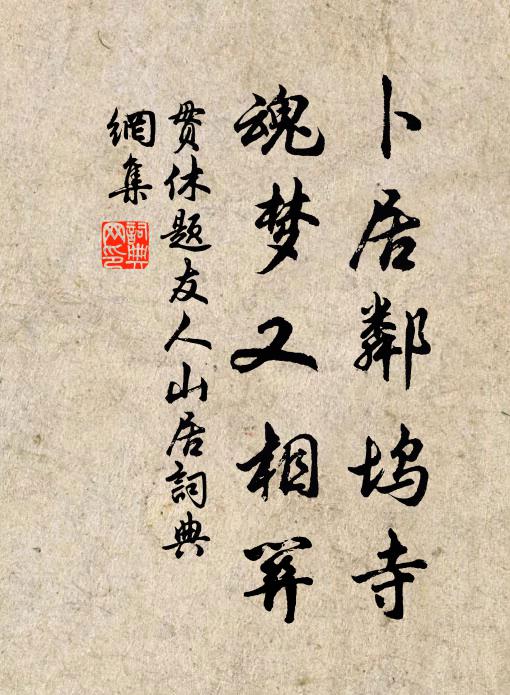 卜居鄰塢寺
魂梦又相関
贯休题友人山居詞典
網集
詞典
网印